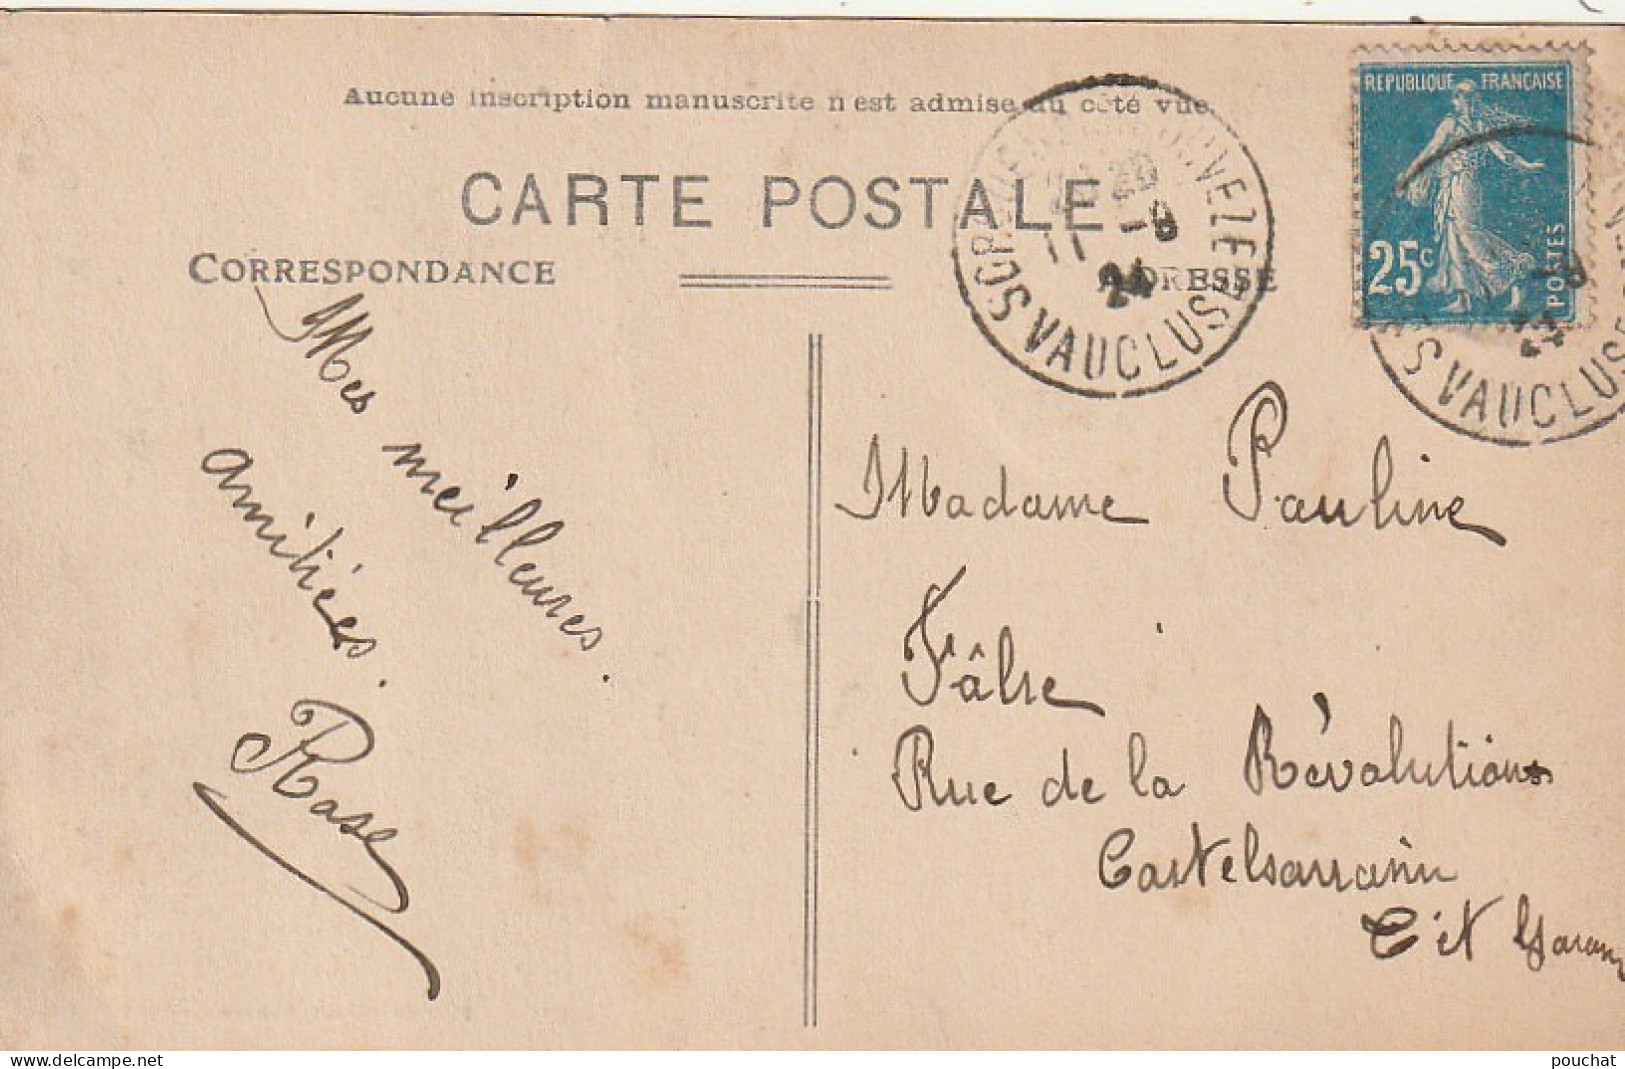 Aucune inscription manuscrite n'est admise du côté vue.
CARTE POSTALE
CORRESPONDANCE
ADRESSE
REPUBLIQUE FRANÇAISE
25c
POSTES
VAUCLUSE
24
VAUCLUS
Mes meilleures
amitiés.
Rose
Madame Pauline
Fâhre
Rue de la Révolutions
Castelsarrasin
T et Garonn
delcampe.net
pouchat